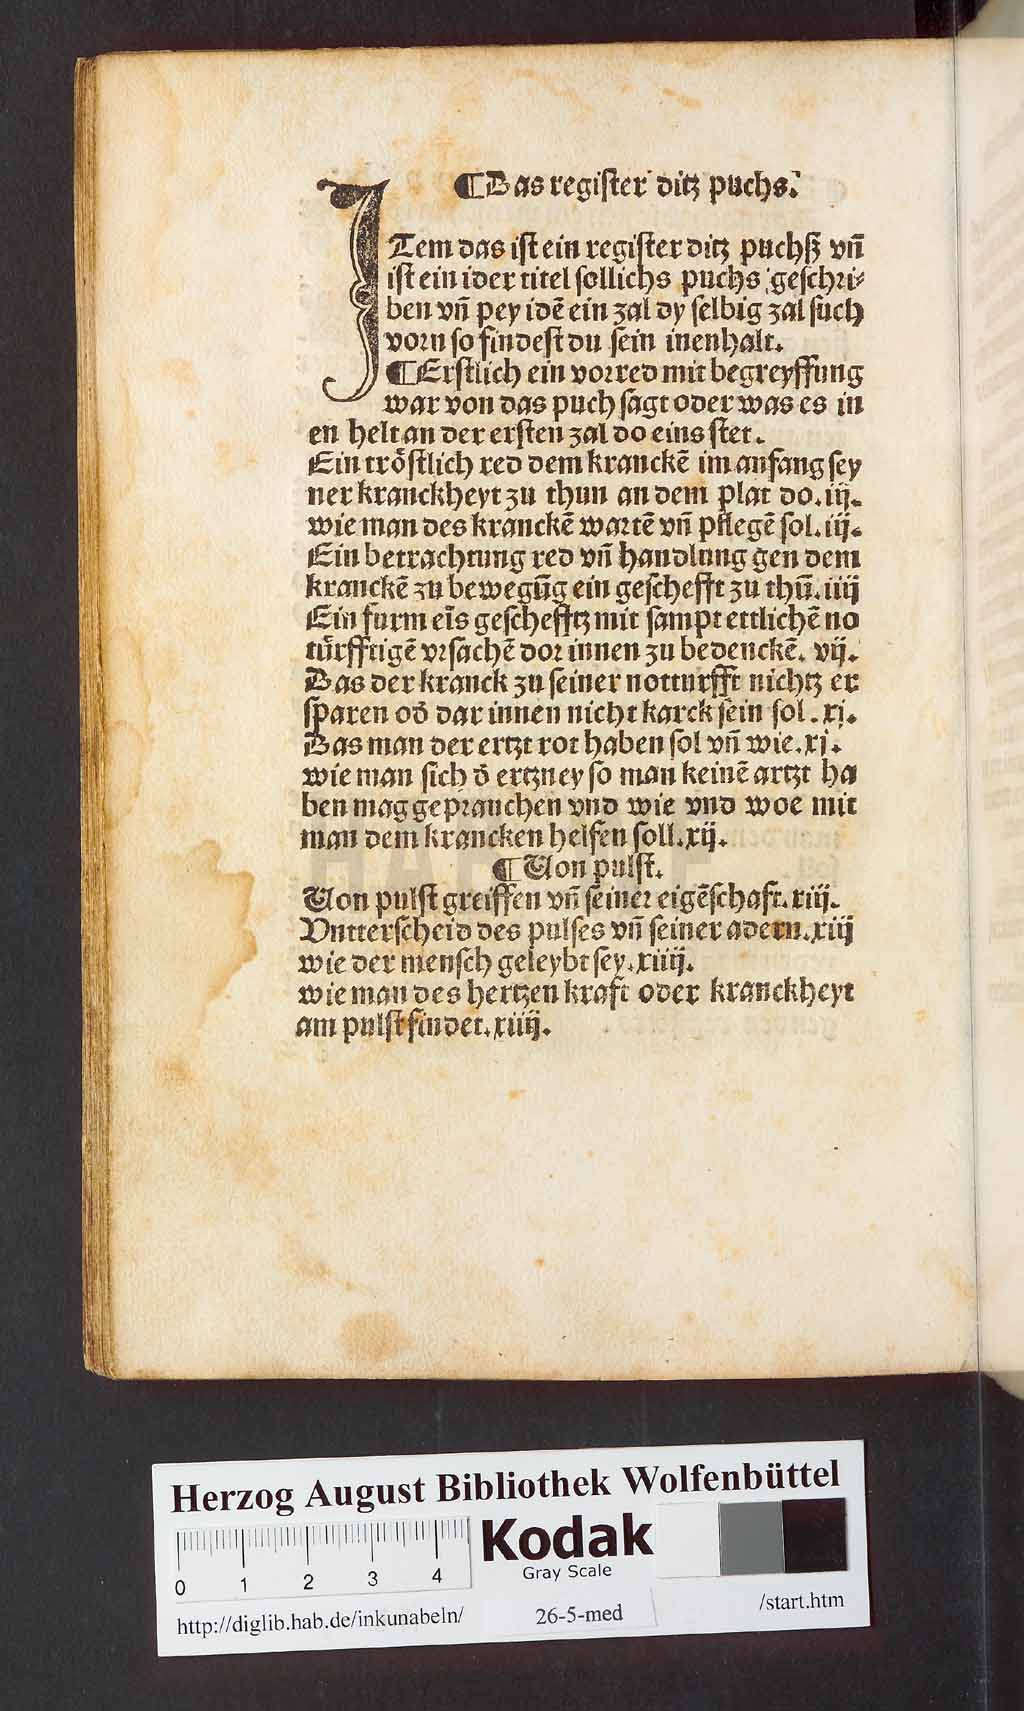 ¶ Das register ditz puchs.
ITem das ist ein register ditz puchß vn̄
ist ein ider titel sollichs puchs geschri⸗
ben vn̄ pey idē ein zal dy selbig zal such
vorn so findest du sein inenhalt.
¶ Erstlich ein vorred mit begreyffung
war von das puch sagt oder was es in
en helt an der ersten zal do eins stet.
Ein trȯstlich red dem kranckē im anfang sey
ner kranckheyt zu thun an dem plat do.iij.
wie man des kranckē wartē vn̄ pflegē sol.iij.
Ein betrachtung red vn̄ handlung gen dem
kranckē zu bewegūg ein geschefft zu thū.iiij
Ein furm eīs geschefftz mit sampt ettlichē no
tu̇rfftigē vrsachē dor innen zu bedenckē. vij.
Das der kranck zu seiner notturfft nichtz er
sparen od̄ dar innen nicht karck sein sol.xj.
Das man der ertzt rot haben sol vn̄ wie.xj.
wie man sich d̄ ertzney so man keinē artzt ha
ben mag geprauchen vnd wie vnd woe mit
man dem krancken helfen soll.xij.
¶ Von pulst.
Von pulst greiffen vn̄ seiner eigēschaft.xiij.
Vntterscheid des pulses vn̄ seiner adern.xiij
wie der mensch geleybt sey.xiiij.
wie man des hertzen kraft oder kranckheyt
am pulst findet.xiiij.
Herzog August Bibliothek Wolfenbüttel
Kodak
Gray Scale
0 1 2 3 4
http://diglib.hab.de/inkunabeln/
26-5-med
/start.htm